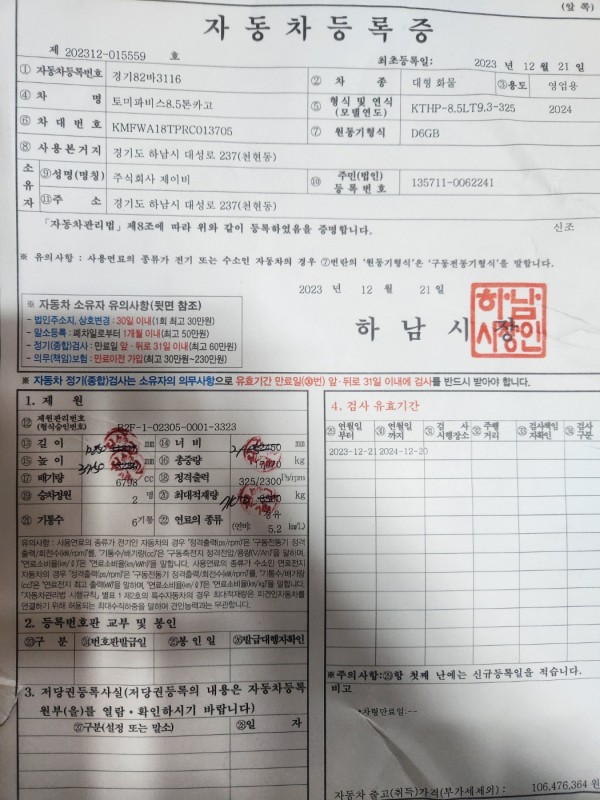 (앞 쪽)
자동차등록증
제 202312-015559 호
최초등록일: 2023 년 12 월 21 일
① 자동차등록번호 경기82바3116 ② 차 종 대형 화물 ③용도 영업용
④ 차 명 토미파비스8.5톤카고 ⑤ 형식 및 연식 (모델연도) KTHP-8.5LT9.3-325 2024
⑥ 차 대 번 호 KMFWA18TPRC013705 ⑦ 원동기형식 D6GB
⑧ 사용본거지 경기도 하남시 대성로 237(천현동)
소유자 ⑨성명(명칭) 주식회사 제이비 ⑩ 주민(법인)등록번호 135711-0062241
⑪주 소 경기도 하남시 대성로 237(천현동)
「자동차관리법」 제8조에 따라 위와 같이 등록하였음을 증명합니다. 신조
※ 유의사항 : 사용연료의 종류가 전기 또는 수소인 자동차의 경우 ⑦번란의 '원동기형식'은 '구동전동기형식'을 말합니다.
2023 년 12 월 21 일
※ 자동차 소유자 유의사항(뒷면 참조)
- 법인주소지, 상호변경 : 30일 이내(1회 최고 30만원)
- 말소등록 : 폐차일로부터 1개월 이내(최고 50만원)
- 정기(종합)검사 : 만료일 앞·뒤로 31일 이내(최고 60만원)
- 의무(책임)보험 : 만료이전 가입(최고 30만원~230만원)
하 남 시 장
하남
시장인
※ 자동차 정기(종합)검사는 소유자의 의무사항으로 유효기간 만료일(㉚번) 앞·뒤로 31일 이내에 검사를 반드시 받아야 합니다.
1. 제 원
⑫ 제원관리번호 (형식승인번호) B2F-1-02305-0001-3323
⑬ 길 이 mm ⑭ 너 비 mm
⑮ 높 이 mm ⑯ 총중량 kg
⑰ 배기량 6798 cc ⑱ 정격출력 325/2300 Ps/rpm
⑲ 승차정원 2 명 ⑳ 최대적재량 kg
㉑ 기통수 6기통 ㉒ 연료의 종류 경유 (연비: 5.2 km/L)
유의사항 : 사용연료의 종류가 전기인 자동차의 경우 '정격출력(ps/rpm)'은 '구동전동기 정격
출력/회전수(kW/rpm)'를, '기통수/배기량(cc)'은 '구동축전지 정격전압/용량(V/Ah)'을 말하며,
'연료소비율(km/ℓ)'은 '연료소비율(km/kWh)'을 말합니다. 사용연료의 종류가 수소인 연료전지
자동차의 경우 '정격출력(ps/rpm)'은 '구동전동기 정격출력/회전수(kW/rpm)'를, '기통수/배기량
(cc)'은 '연료전지 최고 출력(kW)'을 말하며, '연료소비율(km/ℓ)'은 '연료소비율(km/kg)'을 말합니다.
「자동차관리법 시행규칙」 별표 1 제2호의 특수자동차의 경우 최대적재량은 피견인자동차를
연결하기 위해 허용되는 최대수직하중을 말하며 견인능력과는 무관합니다.
2. 등록번호판 교부 및 봉인
㉓구 분 ㉔번호판발급일 ㉕봉 인 일 ㉖발급대행자확인
3. 저당권등록사실(저당권등록의 내용은 자동차등록
원부(을)를 열람·확인하시기 바랍니다)
㉗구분(설정 또는 말소) ㉘일 자
4. 검사 유효기간
㉙ 연월일부터 ㉚ 연월일까지 ㉛ 검 사 시행장소 ㉜ 주행거리 ㉝ 검사책임자확인 ㉞ 검사구분
2023-12-21 2024-12-20
※주의사항:㉙항 첫째 난에는 신규등록일을 적습니다.
비고
*차령만료일:--
자동차 출고(취득)가격(부가세제외): 106,476,364 원